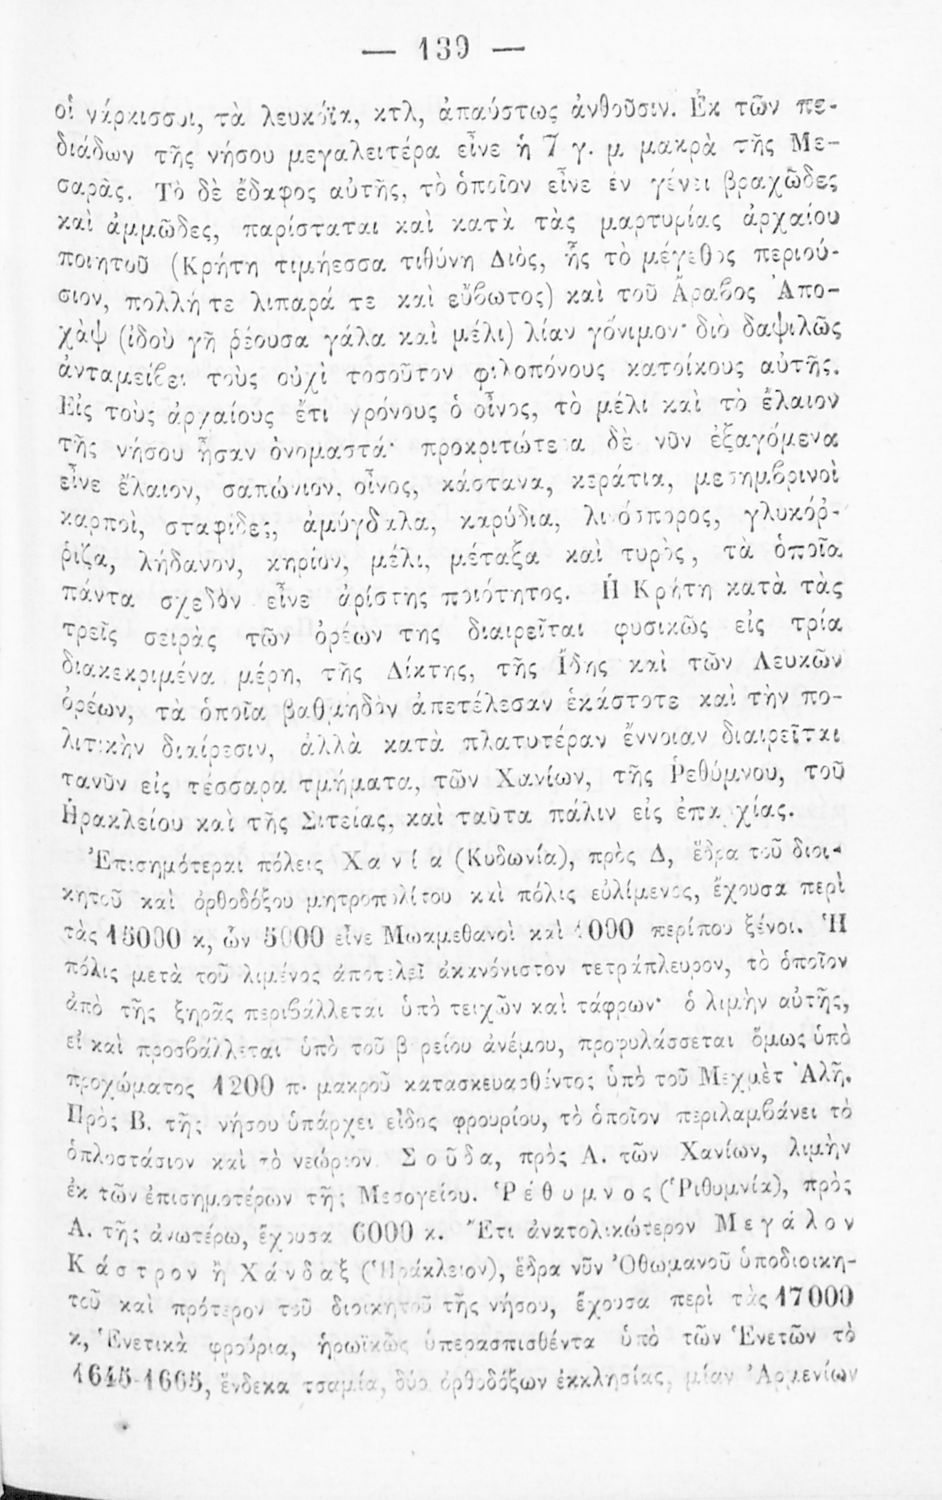 — 139 —
οἱ νάρκισσοι, τὰ λευκόϊα, κτλ, ἀπαύστως ἀνθοῦσιν. Ἐκ τῶν πε-
διάδων τῆς νήσου μεγαλειτέρα εἶνε ἡ 7 γ. μ. μακρὰ τῆς Με-
σαρᾶς. Τὸ δὲ ἔδαφος αὐτῆς, τὸ ὁποῖον εἶνε ἐν γένει βραχῶδες
καὶ ἀμμῶδες, παρίσταται καὶ κατὰ τὰς μαρτυρίας ἀρχαίου
ποιητοῦ (Κρήτη τιμήεσσα τιθύνη Διὸς, ἧς τὸ μέγεθος περιού-
σιον, πολλή τε λιπαρά τε καὶ εὔβωτος) καὶ τοῦ Ἄραβος Ἀπο-
χὰψ (ἰδοὺ γῆ ῥέουσα γάλα καὶ μέλι) λίαν γόνιμον· διὸ δαψιλῶς
ἀνταμείβει τοὺς οὐχὶ τοσοῦτον φιλοπόνους κατοίκους αὐτῆς.
Εἰς τοὺς ἀρχαίους ἔτι χρόνους ὁ οἶνος, τὸ μέλι καὶ τὸ ἔλαιον
τῆς νήσου ἦσαν ὀνομαστά· προκριτώτερα δὲ νῦν ἐξαγόμενα
εἶνε ἔλαιον, σαπώνιον, οἶνος, κάστανα, κεράτια, μεσημβρινοὶ
καρποὶ, σταφίδες, ἀμύγδαλα, καρύδια, λινόσπορος, γλυκόρ-
ῥιζα, λήδανον, κηρίον, μέλι, μέταξα καὶ τυρὸς, τὰ ὁποῖα
πάντα σχεδὸν εἶνε ἀρίστης ποιότητος. Ἡ Κρήτη κατὰ τὰς
τρεῖς σειρὰς τῶν ὀρέων της διαιρεῖται φυσικῶς εἰς τρία
διακεκριμένα μέρη, τῆς Δίκτης, τῆς Ἴδης καὶ τῶν Λευκῶν
ὀρέων, τὰ ὁποῖα βαθμηδὸν ἀπετέλεσαν ἑκάστοτε καὶ τὴν πο-
λιτικὴν διαίρεσιν, ἀλλὰ κατὰ πλατυτέραν ἔννοιαν διαιρεῖται
τανῦν εἰς τέσσαρα τμήματα, τῶν Χανίων, τῆς Ῥεθύμνου, τοῦ
Ἡρακλείου καὶ τῆς Σιτείας, καὶ ταῦτα πάλιν εἰς ἐπαρχίας.
Ἐπισημότεραι πόλεις Χανία (Κυδωνία), πρὸς Δ, ἕδρα τοῦ διοι-
κητοῦ καὶ ὀρθοδόξου μητροπολίτου καὶ πόλις εὐλίμενος, ἔχουσα περὶ
τὰς 15000 κ, ὧν 5000 εἶνε Μωαμεθανοὶ καὶ 1000 περίπου ξένοι. Ἡ
πόλις μετὰ τοῦ λιμένος ἀποτελεῖ ἀκανόνιστον τετράπλευρον, τὸ ὁποῖον
ἀπὸ τῆς ξηρᾶς περιβάλλεται ὑπὸ τειχῶν καὶ τάφρων· ὁ λιμὴν αὐτῆς,
εἰ καὶ προσβάλλεται ὑπὸ τοῦ βορείου ἀνέμου, προφυλάσσεται ὅμως ὑπὸ
προχώματος 1200 π. μακροῦ κατασκευασθέντος ὑπὸ τοῦ Μεχμὲτ Ἀλῆ.
Πρὸς Β. τῆς νήσου ὑπάρχει εἶδος φρουρίου, τὸ ὁποῖον περιλαμβάνει τὸ
ὁπλοστάσιον καὶ τὸ νεώριον. Σοῦδα, πρὸς Α. τῶν Χανίων, λιμὴν
ἐκ τῶν ἐπισημοτέρων τῆς Μεσογείου. Ῥέθυμνος (Ῥιθυμνία), πρὸς
Α. τῆς ἀνωτέρω, ἔχουσα 6000 κ. Ἔτι ἀνατολικώτερον Μεγάλον
Κάστρον ἢ Χάνδαξ (Ἡράκλειον), ἕδρα νῦν Ὀθωμανοῦ ὑποδιοικη-
τοῦ καὶ πρότερον τοῦ διοικητοῦ τῆς νήσου, ἔχουσα περὶ τὰς 17000
κ, Ἑνετικὰ φρούρια, ἡρωϊκῶς ὑπερασπισθέντα ὑπὸ τῶν Ἑνετῶν τὸ
1645-1665, ἕνδεκα τσαμία, δύο ὀρθοδόξων ἐκκλησίας, μίαν Ἀρμενίων